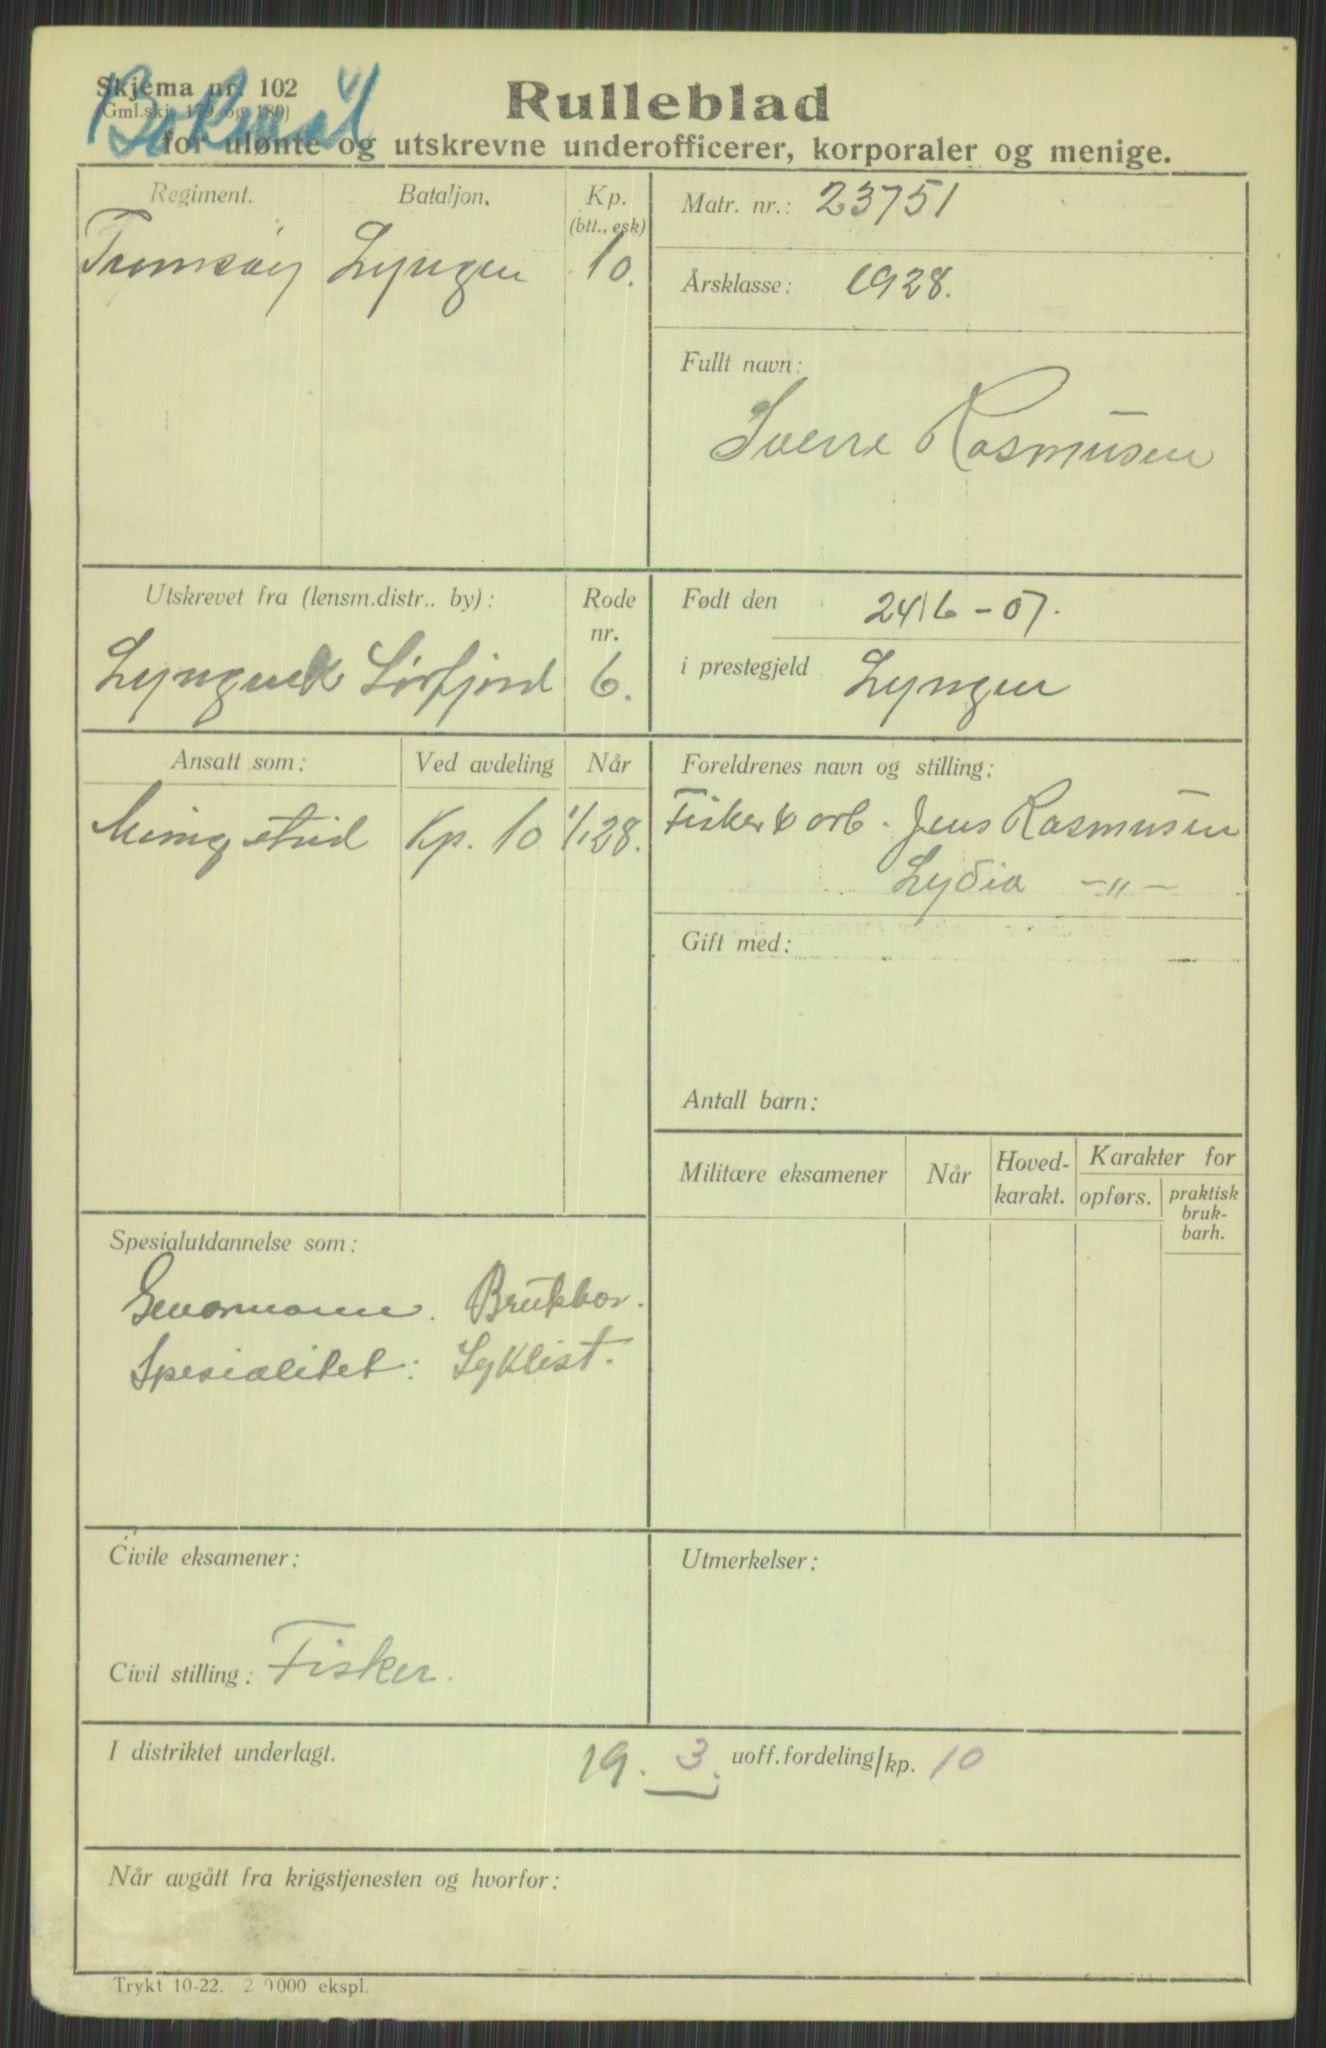 Skjema nr. 102
(Gml.skj. 179 og 180)
Bokmål
Rulleblad
for ulønte og utskrevne underofficerer, korporaler og menige.
Regiment. Bataljon. Kp. (btt., esk)
Tromsøy Lyngen 10.
Matr. nr.: 23751
Årsklasse: 1928.
Fullt navn:
Sverre Rasmusen
Utskrevet fra (lensm.distr.. by): Rode nr.
Sørfjord 6.
Født den 24/6-07.
i prestegjeld Lyngen
Ansatt som: Ved avdeling Når
Menig strid Kp. 10 1/1 28.
Foreldrenes navn og stilling:
Fisker & arb. Jens Rasmusen
Lydia -"-
Gift med:
Antall barn:
Militære eksamener Når Hoved-karakt. Karakter for
opførs. praktisk bruk-barh.
Spesialutdannelse som:
Geværmann. Brukbar.
Spesialitet: Syklist.
Civile eksamener:
Civil stilling: Fisker.
Utmerkelser:
I distriktet underlagt.
19. 3. uoff.fordeling/kp. 10
Når avgått fra krigstjenesten og hvorfor:
Trykt 10-22. 2 0000 ekspl.